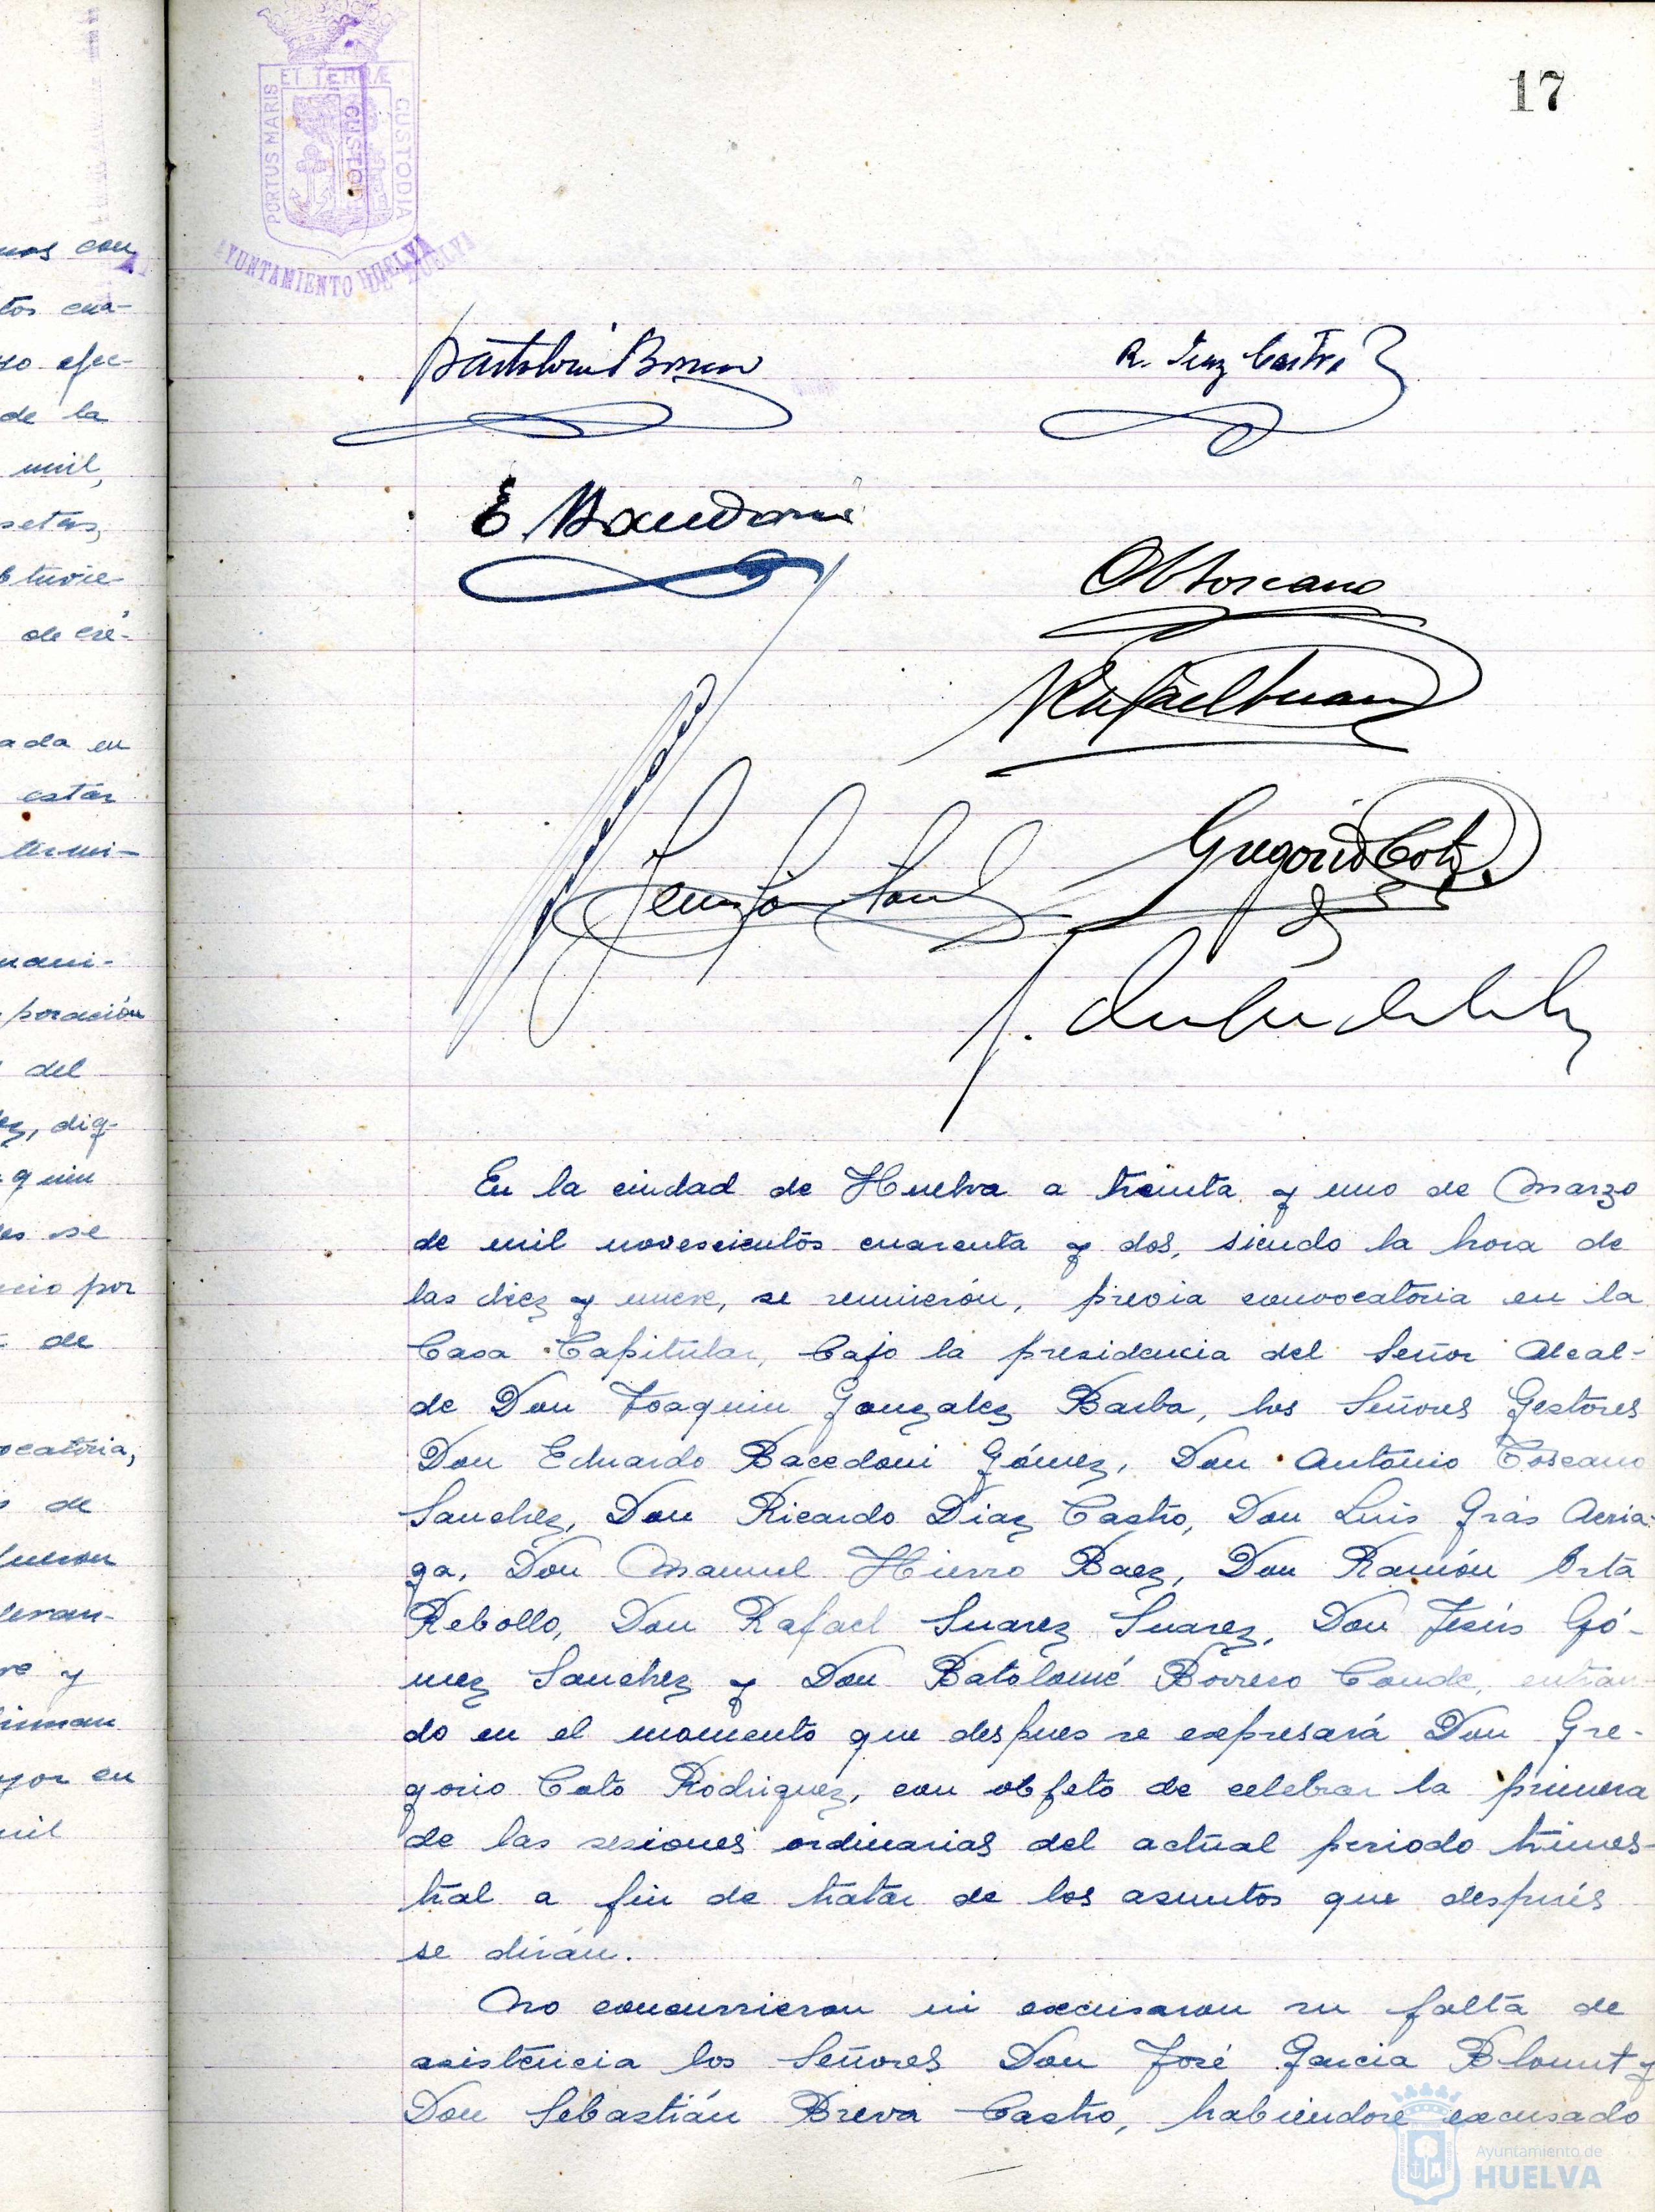 17
PORTUS MARIS
ET TERRÆ
CUSTODIA
AYUNTAMIENTO DE HUELVA
mos con
tos cua-
so efec-
de la
mil,
setas,
obtuvie-
de cré-
ada en
estar
termi-
mani-
poración
del
ez, dig-
quin
es se
cio por
de
ocatoria,
de
fueron
re y
firman
yor en
mil
Bartolomé Borrero
R. Diaz Castro
E Bacedoni
A Toscano
Rafael Suarez
Gregorio Coto
En la ciudad de Huelva a treinta y uno de Marzo
de mil novescientos cuarenta y dos, siendo la hora de
las diez y nueve, se reunierón, previa convocatoria en la
Casa Capitular, bajo la presidencia del Señor Alcal-
de Don Joaquin Gonzalez Barba, los Señores Gestores
Don Eduardo Bacedoni Gómez, Don Antonio Toscano
Sanchez, Don Ricardo Diaz Castro, Don Luis Gras Arria-
ga, Don Manuel Hierro Baez, Don Ramón Orta
Rebollo, Don Rafael Suarez Suarez, Don Jesús Gó-
mez Sanchez y Don Batolomé Borrero Conde, entran-
do en el momento que despues se expresará Don Gre-
gorio Coto Rodriguez, con objeto de celebrar la primera
de las sesiones ordinarias del actual periodo trimes-
tral a fin de tratar de los asuntos que después
se dirán.
No concurrieron ni excusaron su falta de
asistencia los Señores Don José Garcia Blount y
Don Sebastián Breva Castro, habiendose excusado
Ayuntamiento de
HUELVA